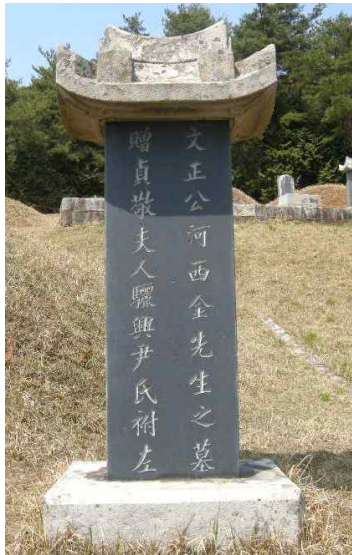 文正公河西金先生之墓
贈貞敬夫人驪興尹氏祔左